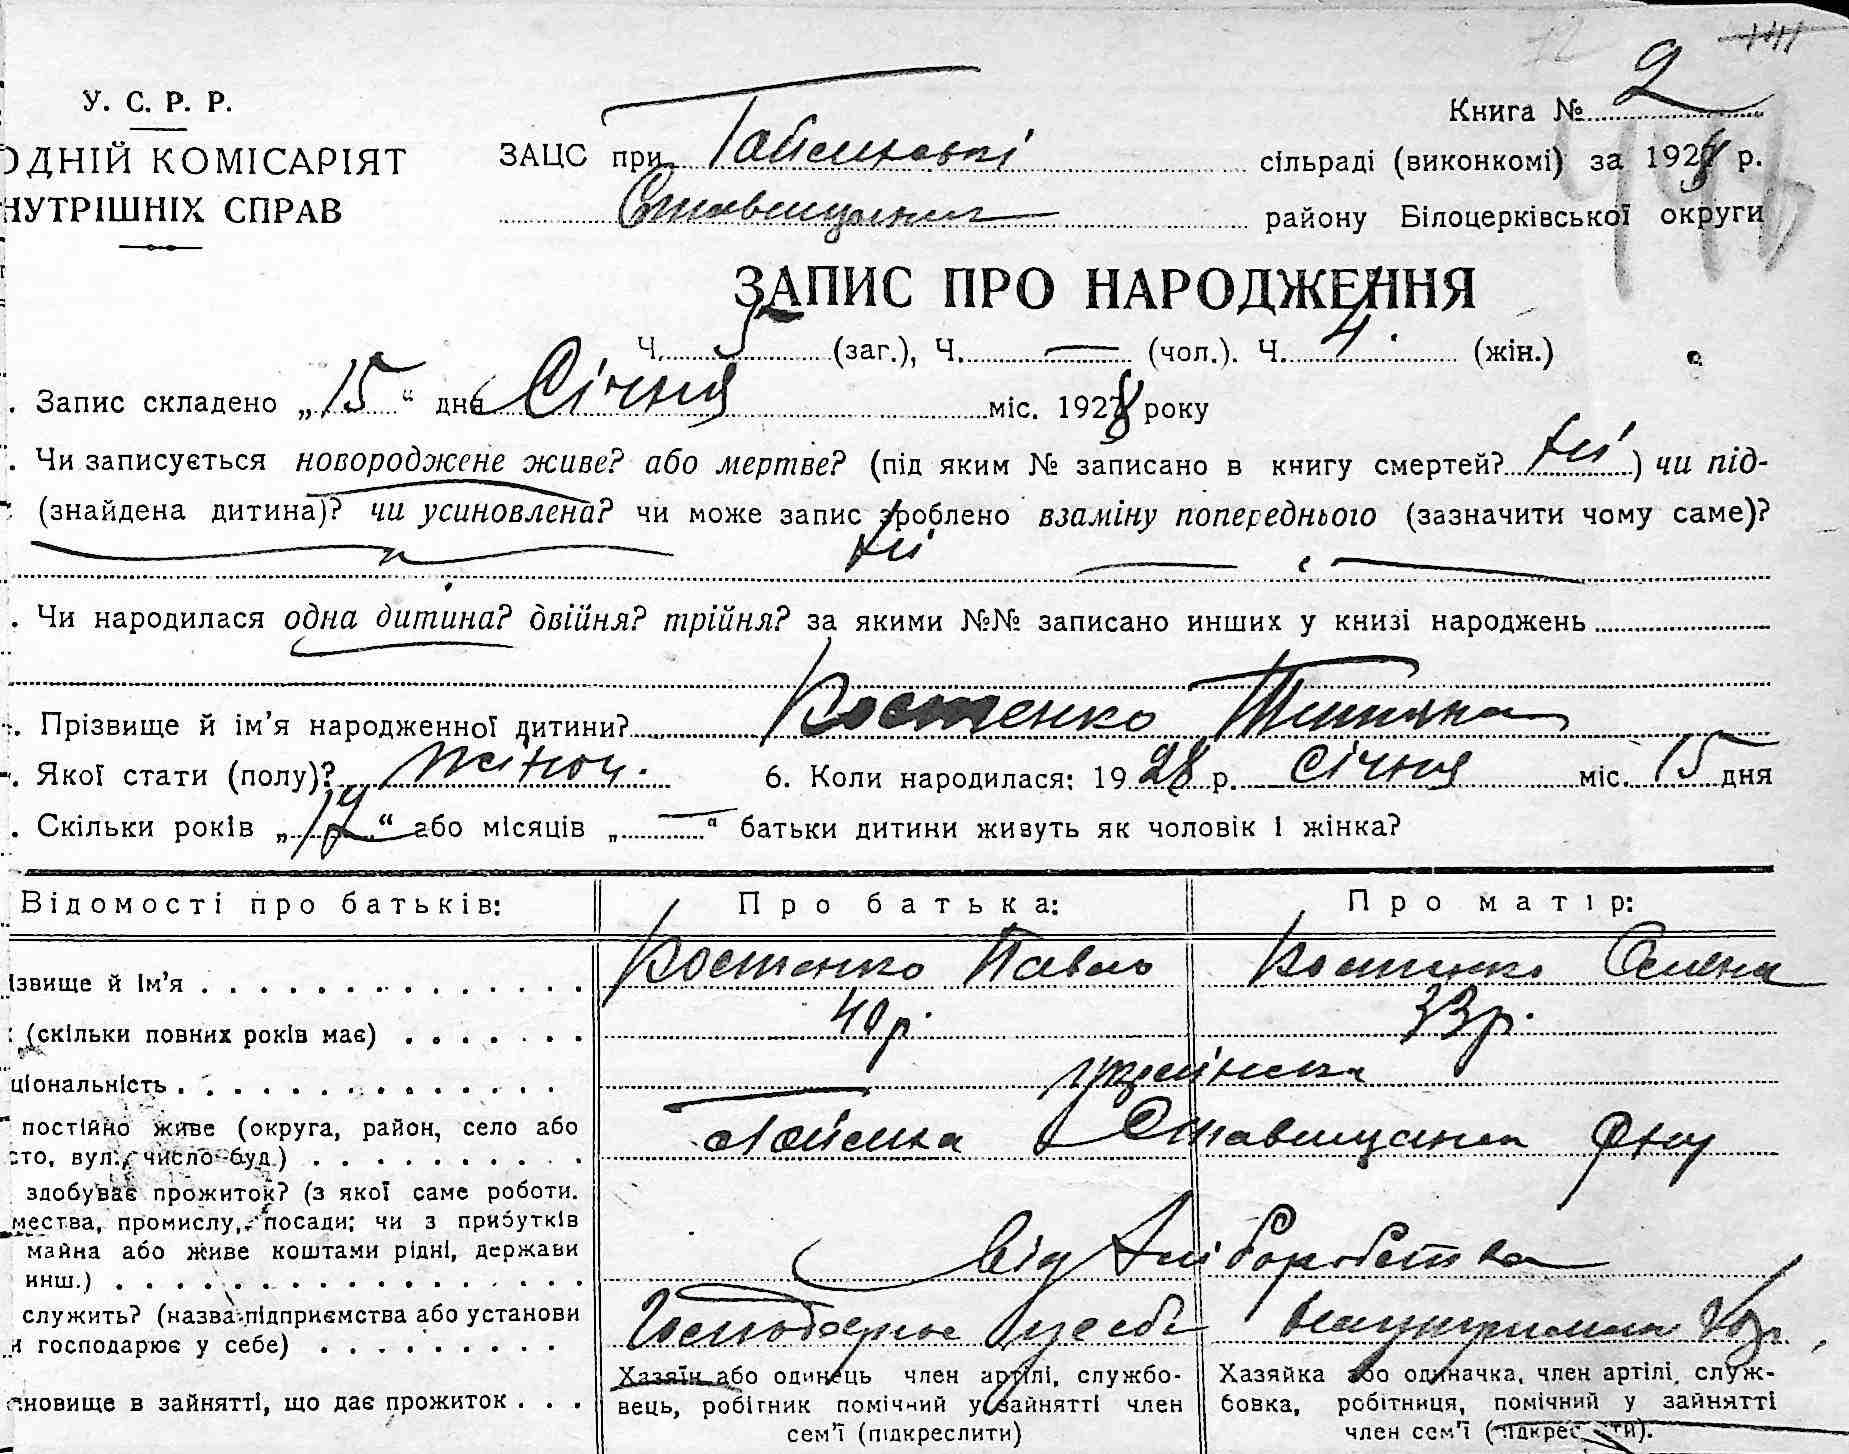 Книга № 2
У. С. Р. Р.
ОДНІЙ КОМІСАРІЯТ
НУТРІШНІХ СПРАВ
ЗАЦС при Гайсинські сільраді (виконкомі) за 1928 р.
Ставищанськ району Білоцерківської округи
ЗАПИС ПРО НАРОДЖЕННЯ
Ч. 5 (заг.), Ч. — (чол.). Ч. 4. (жін.)
. Запис складено „15“ дня Січня міс. 1928 року
. Чи записується новороджене живе? або мертве? (під яким № записано в книгу смертей? ні) чи під-
(знайдена дитина)? чи усиновлена? чи може запис зроблено взаміну попереднього (зазначити чому саме)?
ні
. Чи народилася одна дитина? двійня? трійня? за якими №№ записано инших у книзі народжень
. Прізвище й ім’я народженної дитини? Костенко Тетяна
. Якої стати (полу)? жіноч. 6. Коли народилася: 1928 р. січня міс. 15 дня
. Скільки років „12“ або місяців „—“ батьки дитини живуть як чоловік і жінка?
Відомості про батьків: Про батька: Про матір:
ізвище й ім’я Костенко Павло Костенко Олена
(скільки повних років має) 40 р. 33 р.
ціональність українська
постійно живе (округа, район, село або
сто, вул., число буд.) Ставищанськ р-ну
здобуває прожиток? (з якої саме роботи,
мества, промислу, посади; чи з прибутків
майна або живе коштами рідні, держави
инш.) від хліборобства
служить? (назва підприємства або установи
и господарює у себе) Господарює у себе
Хазяїн або одинець член артілі, службо-
вець, робітник помічний у зайнятті член
сем’ї (підкреслити)
Хазяйка або одиначка, член артілі, служ-
бовка, робітниця, помічний у зайнятті
член сем’ї (підкреслити).
ановище в зайнятті, що дає прожиток